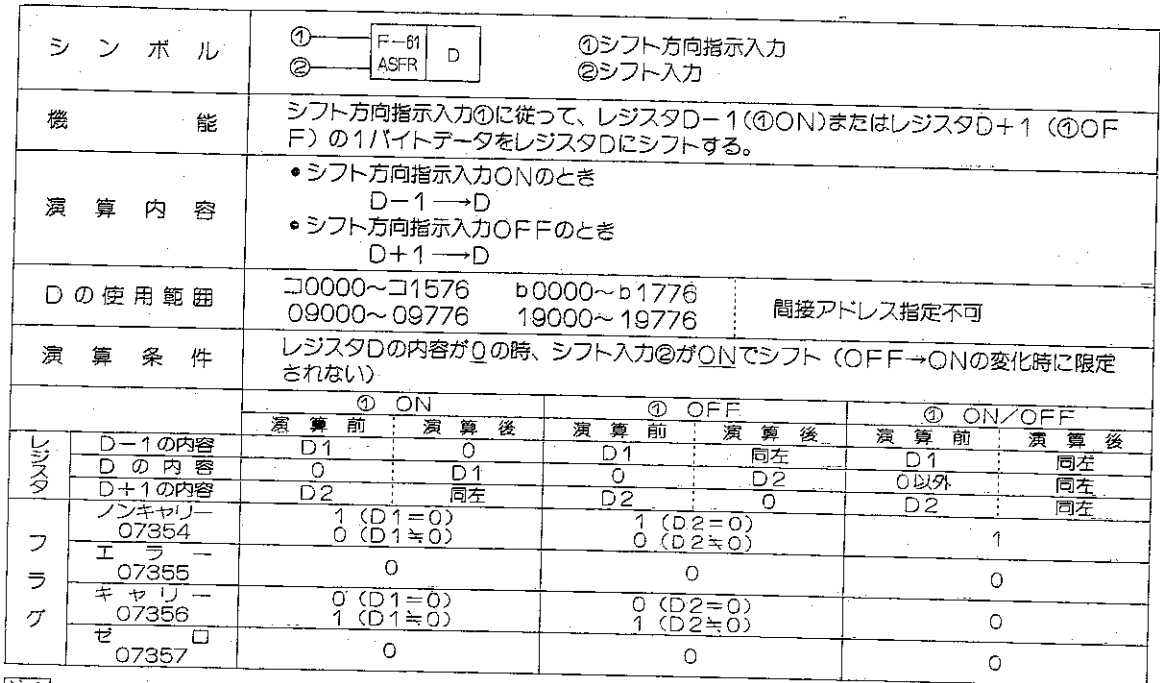 シンボル
① F-61 ASFR D
② 
①シフト方向指示入力
②シフト入力
機能
シフト方向指示入力①に従って、レジスタD-1(①ON)またはレジスタD+1(①OF
F)の1バイトデータをレジスタDにシフトする。
演算内容
●シフト方向指示入力ONのとき
D-1→D
●シフト方向指示入力OFFのとき
D+1→D
Dの使用範囲
コ0000~コ1576 b0000~b1776
09000~09776 19000~19776
間接アドレス指定不可
演算条件
レジスタDの内容が0の時、シフト入力②がONでシフト(OFF→ONの変化時に限定
されない)
① ON ① OFF ① ON/OFF
演算前 演算後 演算前 演算後 演算前 演算後
レジスタ
D-1の内容 D1 0 D1 同左 D1 同左
Dの内容 0 D1 0 D2 0以外 同左
D+1の内容 D2 同左 D2 0 D2 同左
フラグ
ノンキャリー 1(D1=0) 1(D2=0) 1
07354 0(D1≒0) 0(D2≒0)
エラー 0 0 0
07355
キャリー 0(D1=0) 0(D2=0) 0
07356 1(D1≒0) 1(D2≒0)
ゼロ 0 0 0
07357